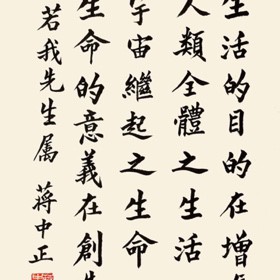 生活的目的在增
人類全體之生活
宇宙繼起之生命
生命的意義在創
若我先生属
蔣中正